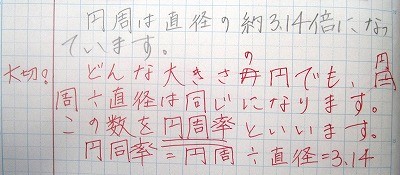 円周は直径の約3.14倍になっ
ています。
大切!
どんな大きさの円でも、円
周÷直径は同じになります。
この数を円周率といいます。
円周率=円周÷直径=3.14